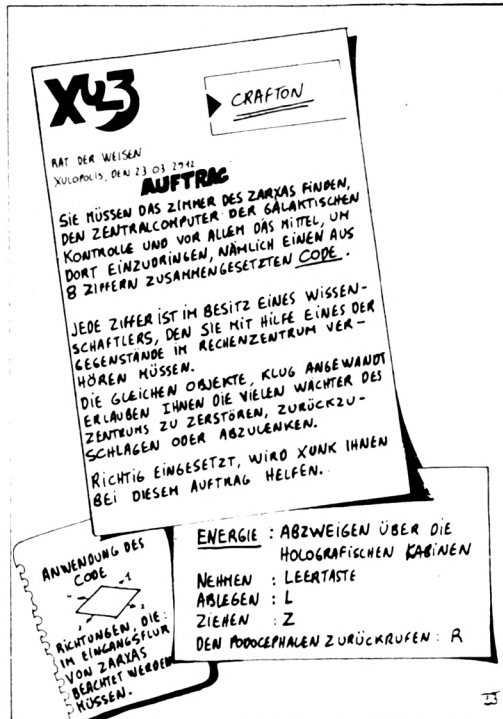 XUL3
CRAFTON
RAT DER WEISEN
XULOPOLIS, DEN 23 03 2912
AUFTRAG
SIE MÜSSEN DAS ZIMMER DES ZARXAS FINDEN,
DEN ZENTRALCOMPUTER DER GALAKTISCHEN
KONTROLLE UND VOR ALLEM DAS MITTEL, UM
DORT EINZUDRINGEN, NÄMLICH EINEN AUS
8 ZIFFERN ZUSAMMENGESETZTEN CODE.
JEDE ZIFFER IST IM BESITZ EINES WISSEN-
SCHAFTLERS, DEN SIE MIT HILFE EINES DER
GEGENSTÄNDE IM RECHENZENTRUM VER-
HÖREN MÜSSEN.
DIE GLEICHEN OBJEKTE, KLUG ANGEWANDT
ERLAUBEN IHNEN DIE VIELEN WÄCHTER DES
ZENTRUMS ZU ZERSTÖREN, ZURÜCKZU-
SCHLAGEN ODER ABZULENKEN.
RICHTIG EINGESETZT, WIRD XUNK IHNEN
BEI DIESEM AUFTRAG HELFEN.
ANWENDUNG DES
CODE
1
RICHTUNGEN, DIE:
IM EINGANGSFLUR
VON ZARXAS
BEACHTET WERDEN
MÜSSEN.
ENERGIE : ABZWEIGEN ÜBER DIE
HOLOGRAFISCHEN KABINEN
NEHMEN : LEERTASTE
ABLEGEN : L
ZIEHEN : Z
DEN PODOCEPHALEN ZURÜCKRUFEN : R